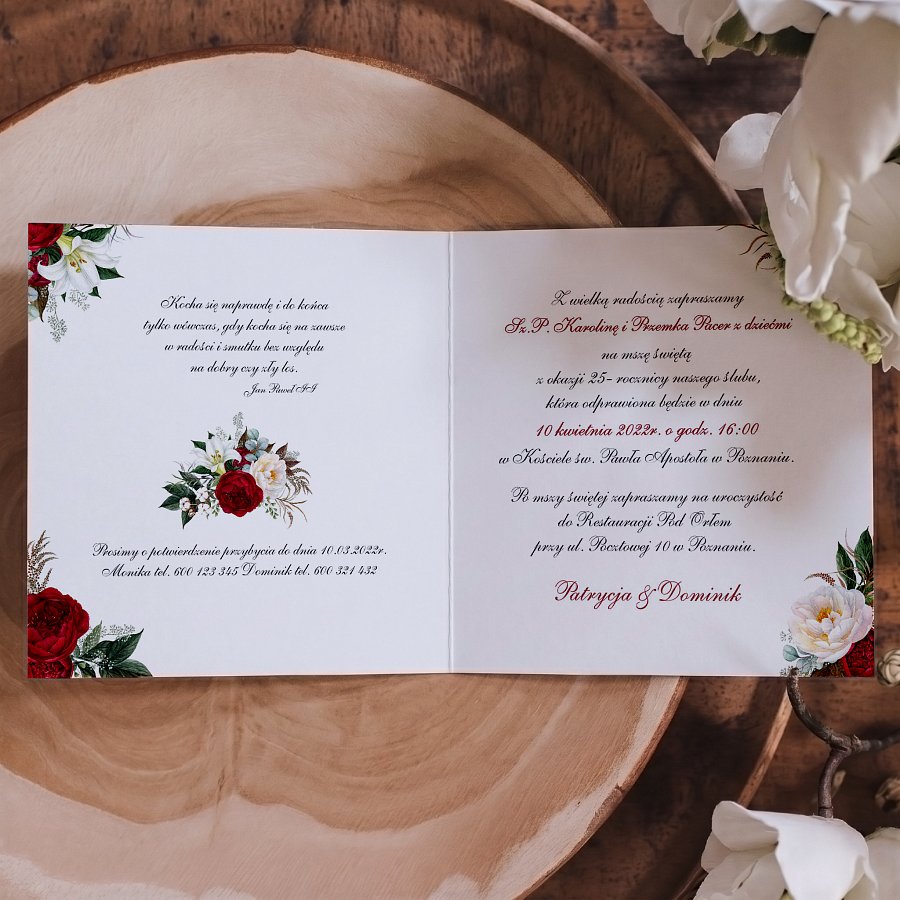 Kocha się naprawdę i do końca
tylko wówczas, gdy kocha się na zawsze
w radości i smutku bez względu
na dobry czy zły los.
Jan Paweł II
Prosimy o potwierdzenie przybycia do dnia 10.03.2022r.
Monika tel. 600 123 345 Dominik tel. 600 321 432
Z wielką radością zapraszamy
Sz.P. Karolinę i Przemka Pacer z dziećmi
na mszę świętą
z okazji 25- rocznicy naszego ślubu,
która odprawiona będzie w dniu
10 kwietnia 2022r. o godz. 16:00
w Kościele św. Pawła Apostoła w Poznaniu.
Po mszy świętej zapraszamy na uroczystość
do Restauracji Pod Orłem
przy ul. Pocztowej 10 w Poznaniu.
Patrycja & Dominik